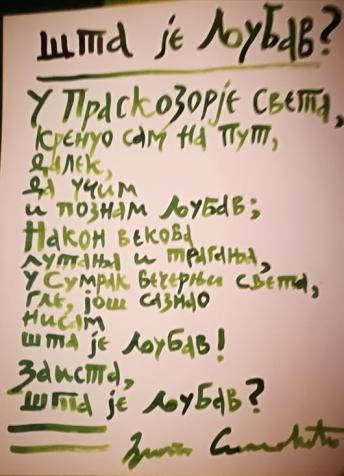 шта је љубав?
У Праскозорје света,
кренуо сам на пут,
далек,
да учим
и познам љубав;
Након векова
лутања и трагања,
у сумрак вечерњи света,
гле, још сазнао
нисам
шта је љубав!
Заиста,
шта је љубав?